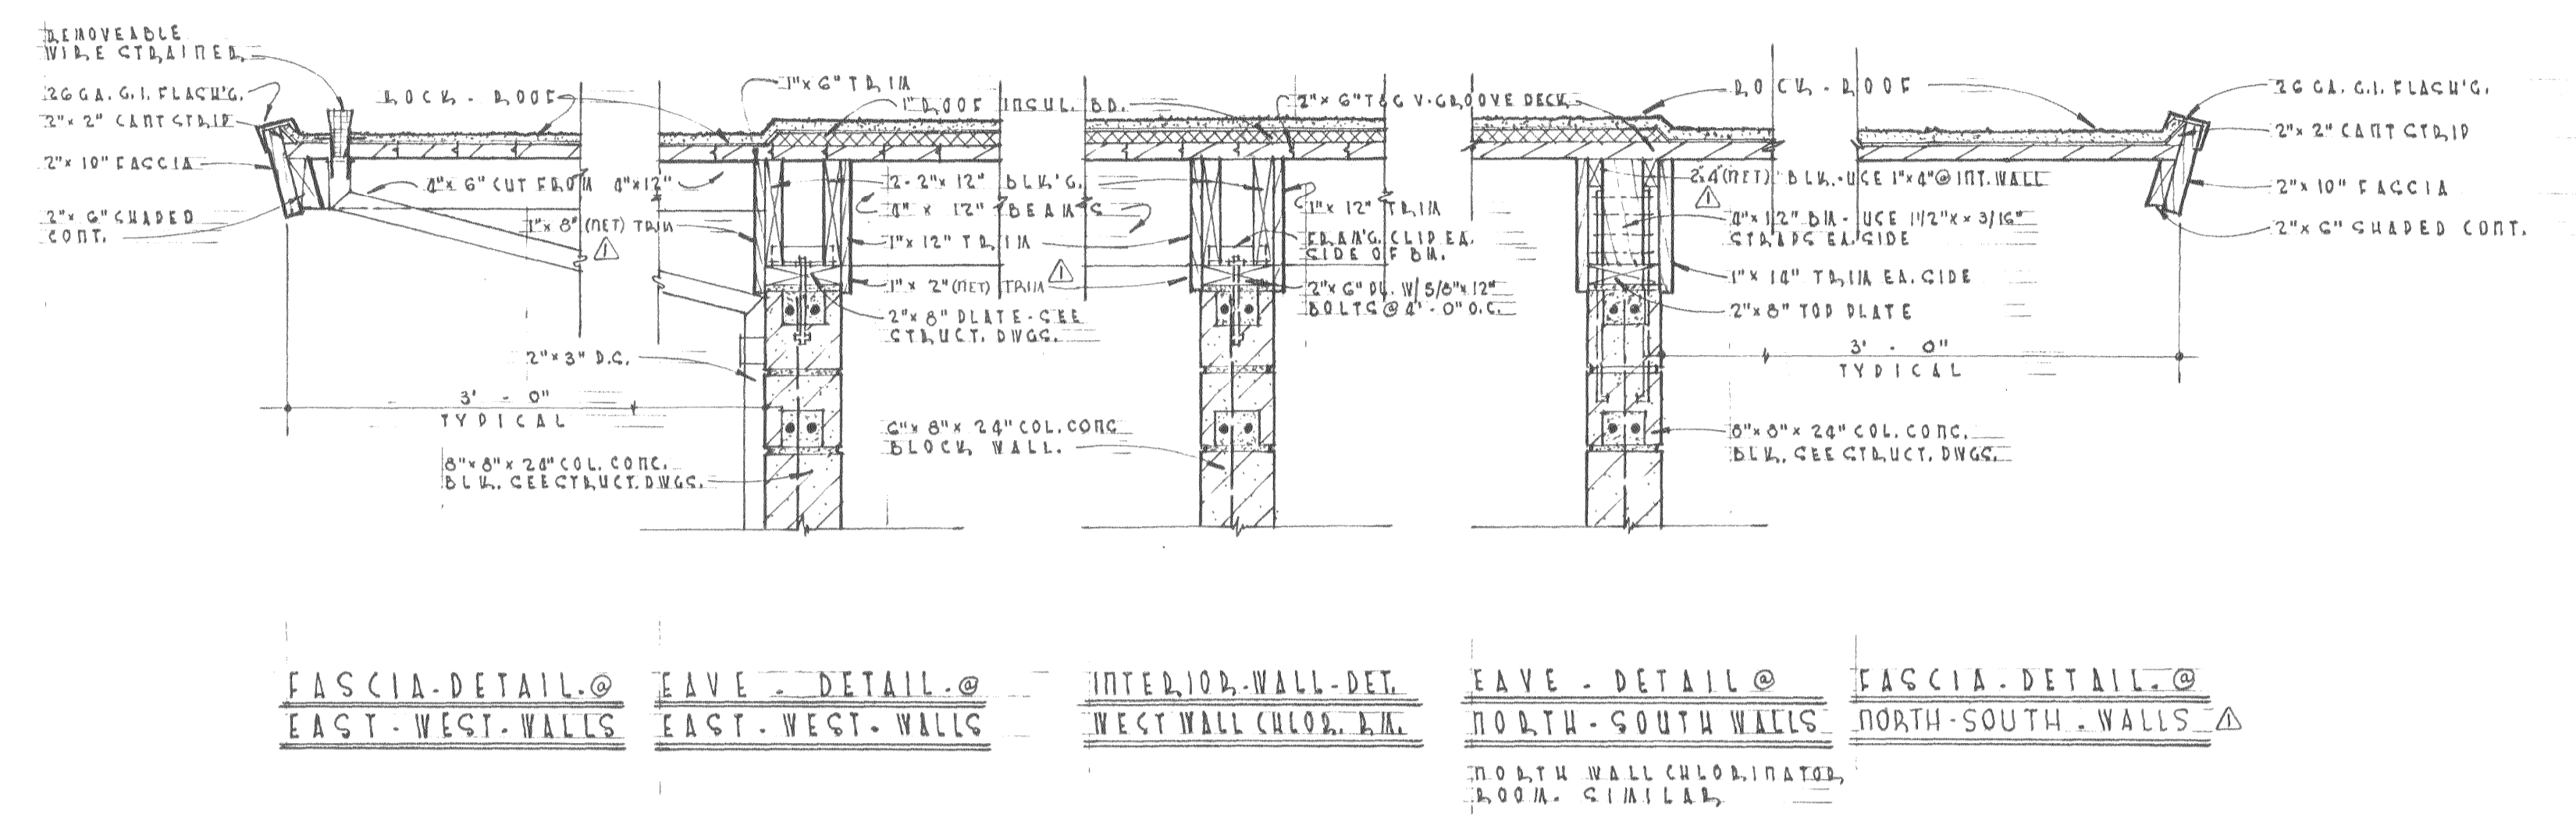 REMOVEABLE
WIRE STRAINER
26 GA. G.I. FLASH'G.
2"x 2" CANT STRIP
2"x 10" FASCIA
2"x 6" SHAPED
CONT.
ROCK - ROOF
4"x 6" CUT FROM 4"x12"
1"x 8" (NET) TRIM
1
2"x 3" D.S.
3' - 0"
TYPICAL
8"x 8"x 24" COL. CONC.
BLK. SEE STRUCT. DWGS.
1"x 6" TRIM
1" ROOF INSUL. BD.
2"x 6" T&G V-GROOVE DECK
2-2"x 12" BLK'G.
4" x 12" BEAMS
1"x 12" TRIM
1"x 2" (NET) TRIM
1
2"x 8" PLATE - SEE
STRUCT. DWGS.
6"x 8"x 24" COL. CONC
BLOCK WALL.
1"x 12" TRIM
FRAM'G. CLIP EA.
SIDE OF BM.
2"x 6" PL. W/ 5/8"x 12"
BOLTS @ 4'-0" O.C.
ROCK - ROOF
2x4 (NET) BLK.-USE 1"x 4" @ INT. WALL
1
4"x 12" BM - USE 1 1/2" x x 3/16"
STRAPS EA. SIDE
1"x 14" TRIM EA. SIDE
2"x 8" TOP PLATE
3' - 0"
TYPICAL
8"x 8"x 24" COL. CONC.
BLK. SEE STRUCT. DWGS.
26 GA. G.I. FLASH'G.
2"x 2" CANT STRIP
2"x 10" FASCIA
2"x 6" SHAPED CONT.
FASCIA-DETAIL.@
EAST-WEST-WALLS
EAVE - DETAIL.@
EAST-WEST-WALLS
INTERIOR-WALL-DET.
WEST WALL CHLOR. RM.
EAVE - DETAIL @
NORTH-SOUTH WALLS
NORTH WALL CHLORINATOR
ROOM - SIMILAR
FASCIA-DETAIL.@
NORTH-SOUTH-WALLS 1